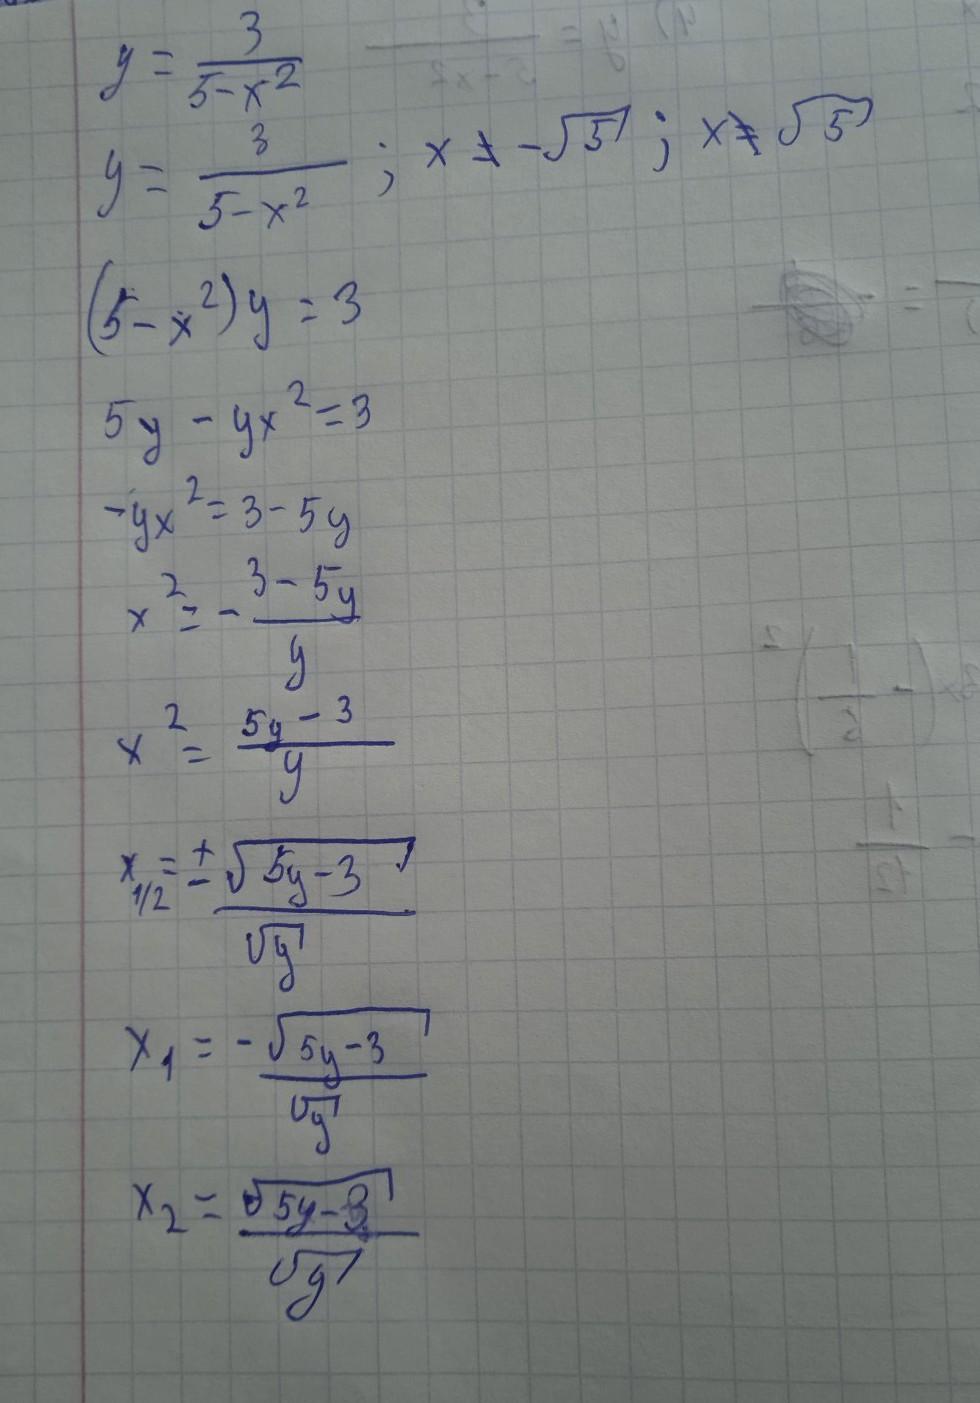 y = 3/(5-x²)
y = 3/(5-x²) ; x ≠ -√5 ; x ≠ √5
(5-x²)y = 3
5y - yx² = 3
-yx² = 3-5y
x² = - (3-5y)/y
x² = (5y-3)/y
x₁/₂ = ± √(5y-3)/√y
x₁ = - √(5y-3)/√y
x₂ = √(5y-3)/√y